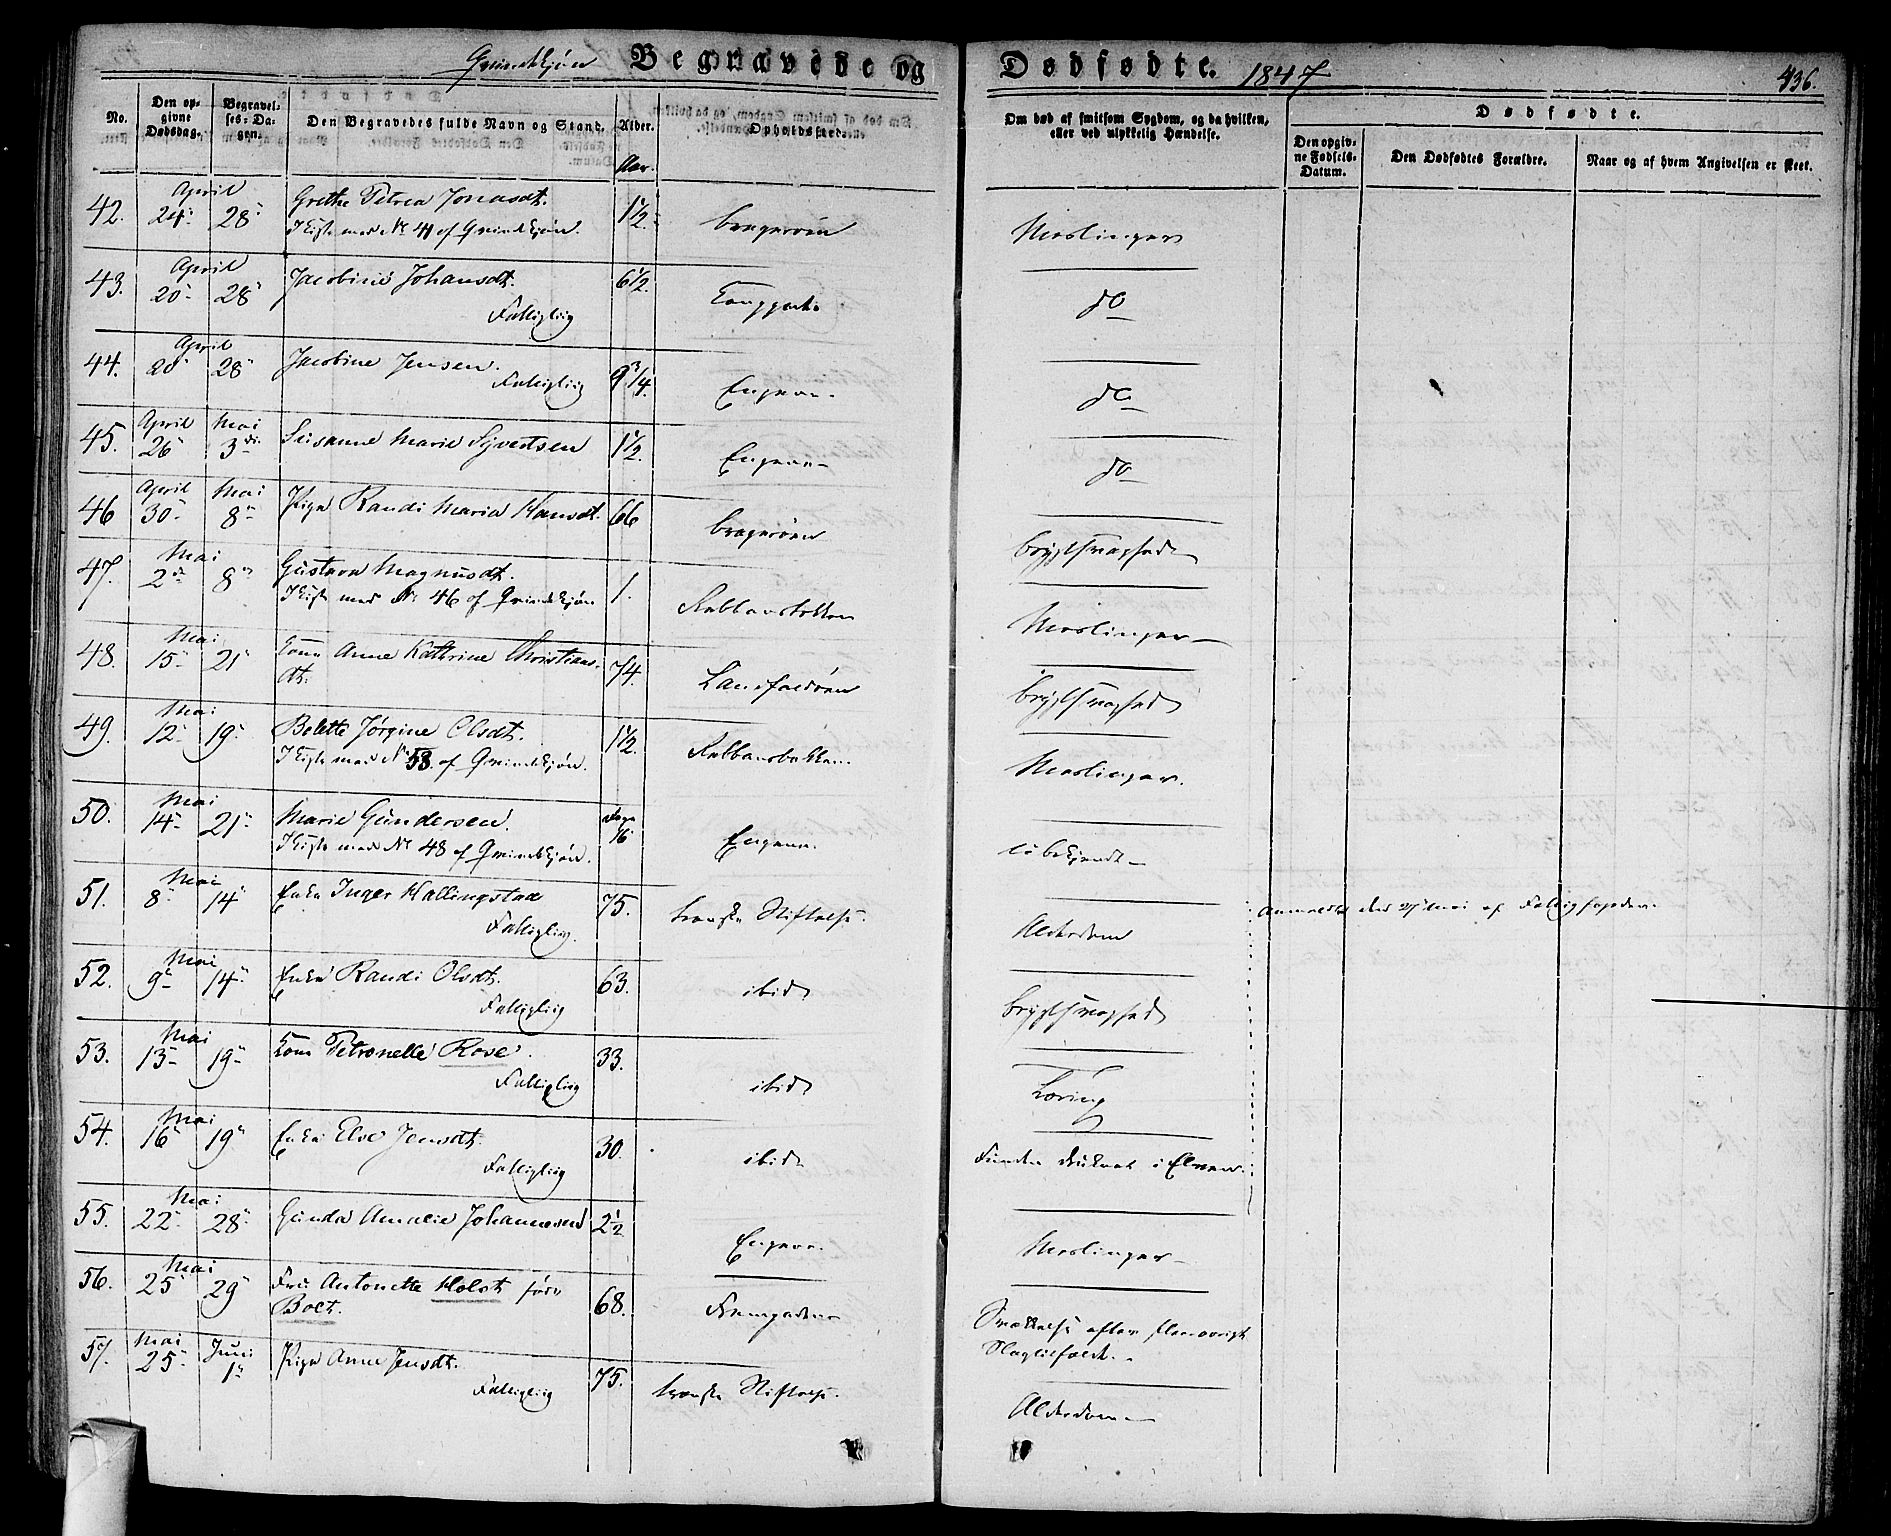 Qvindekjøn Begravede og Dødfødte. 1847 436.
No. Den opgivne Dødsdag. Begravelses-Dagen. Den Begravedes fulde Navn og Stand. Alder. Opholdssted. Om død af smitsom Sygdom, og da hvilken, eller ved ulykkelig Hændelse. Dødfødte.
Aar. Den opgivne Fødsels-Datum. Den Dødfødtes Forældre. Naar og af hvem Angivelsen er skeet.
April
42. 24 28 Grethe Petrea Jonasdt. 1 1/2. Bragerøen Meslinger
I Kiste med No 41 af Qvindekjøn.
April
43. 20 28 Jacobine Johansdt. 6 1/2. do
Fattiglig
April
44. 20 28 Jacobine Jensen. 9 3/4. Engene. do
Fattiglig
April Mai
45. 26 3die Susanne Marie Syvertsen 1 1/2. Engene do
April Mai
46 30 8 Pige Randi Maria Hansdt. 66 Bragerøen Brystsvaghed
Mai
47. 2 8 Gustava Magnusdt. 1. Meslinger
I Kiste med No 46 af Qvindekjøn
Mai
48. 15 21 Kone Anne Kathrine Christiansdt. 74. Landfaldøen Brystsvaghed
Mai
49. 12 19 Belette Jørgine Olsdt. 1 1/2. Kobbersbakken. Meslinger.
I Kiste med No 53. af Qvindekjøn.
Mai
50. 14 21 Marie Gundersen. Dage 16 Engene. Ubekjendt
I Kiste med No 48 af Qvindekjøn.
Mai
51. 8 14 Enke Inger Hallingstad 75. Svenske Stiftelse. Alderdom Anmeldte den Mai af
Fattiglig.
Mai
52. 9 14 Enke Randi Olsdt. 63. ibid Brystsvaghed
Fattiglig
Mai
53. 13 19 Kone Petronelle Rose. 33. ibid Tæring
Fattiglig
Mai
54. 16 19 Enke Elve Jensdt. 30. ibid Funden druknet i Elven.
Fattiglig
Mai
55. 22 28 Gunda Amalie Johannesen 2 1/2 Engene. Meslinger
Mai
56. 25 29 Fru Antonette Holst født Boet. 68. Svækkelse efter
Slagtilfælde.
Mai Juni
57. 25 1 Pige Anne Jensdt. 75. Svenske Stiftelse. Alderdom
Fattiglig